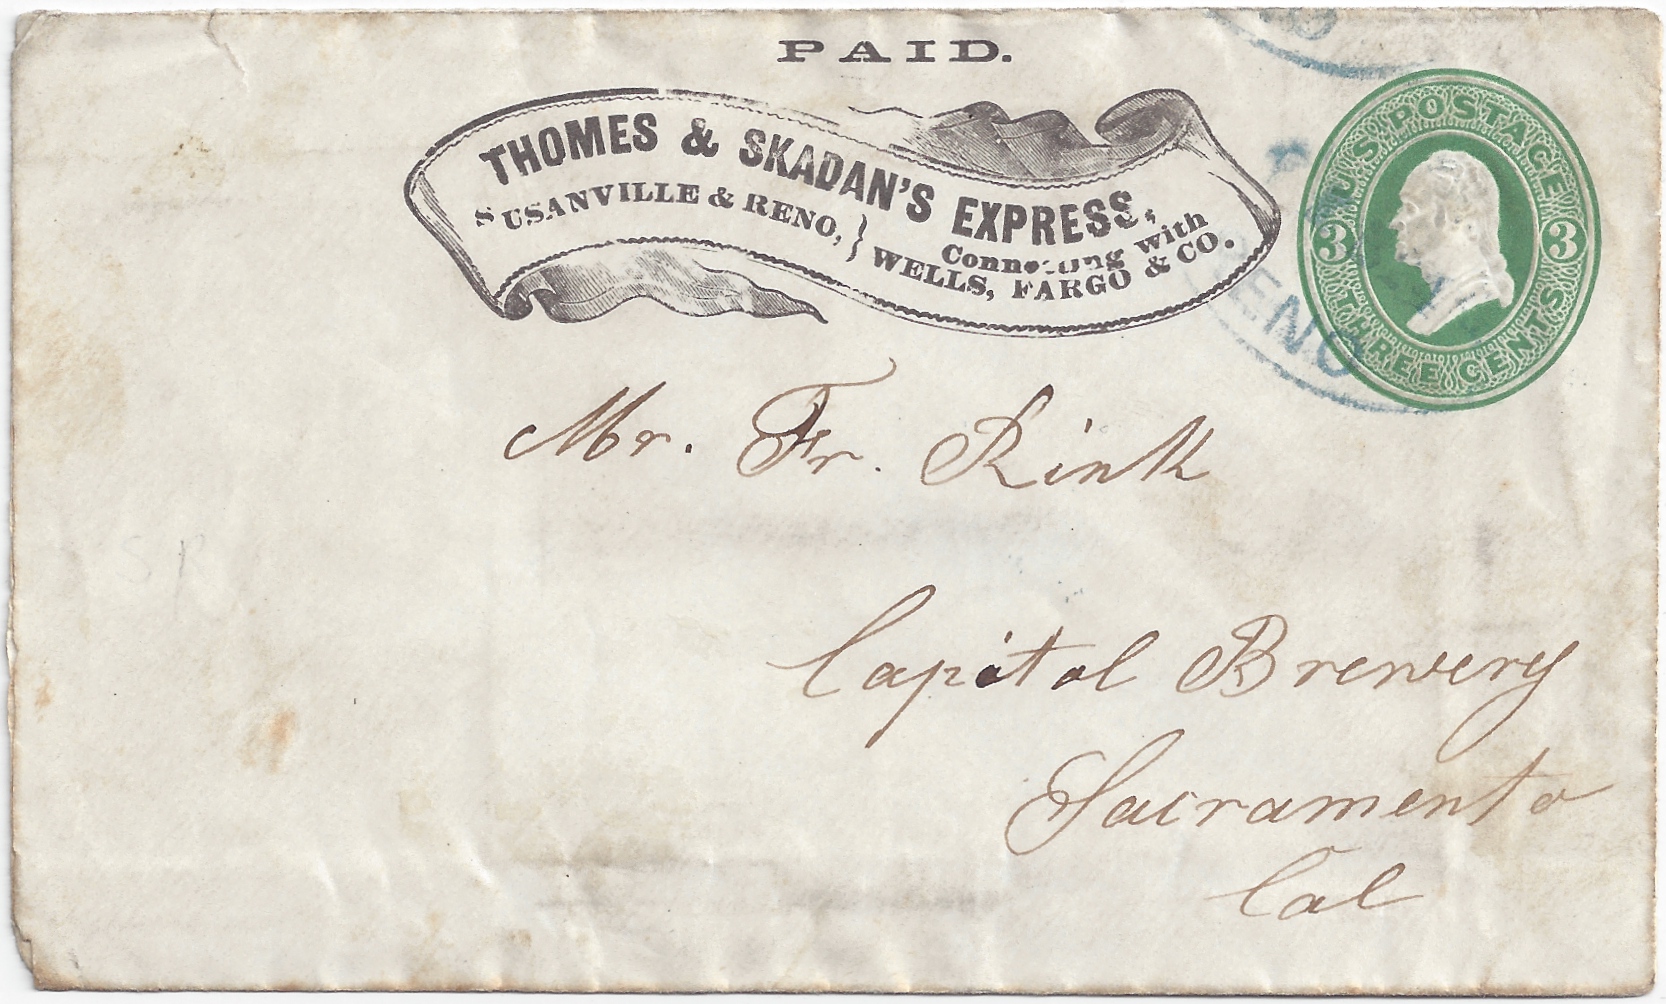 PAID.
THOMES & SKADAN'S EXPRESS,
SUSANVILLE & RENO, } Connecting with
WELLS, FARGO & CO.
U.S. POSTAGE
3 3
THREE CENTS
RENO
Mr. Fr. Rink
Capitol Brewery
Sacramento
Cal
SR